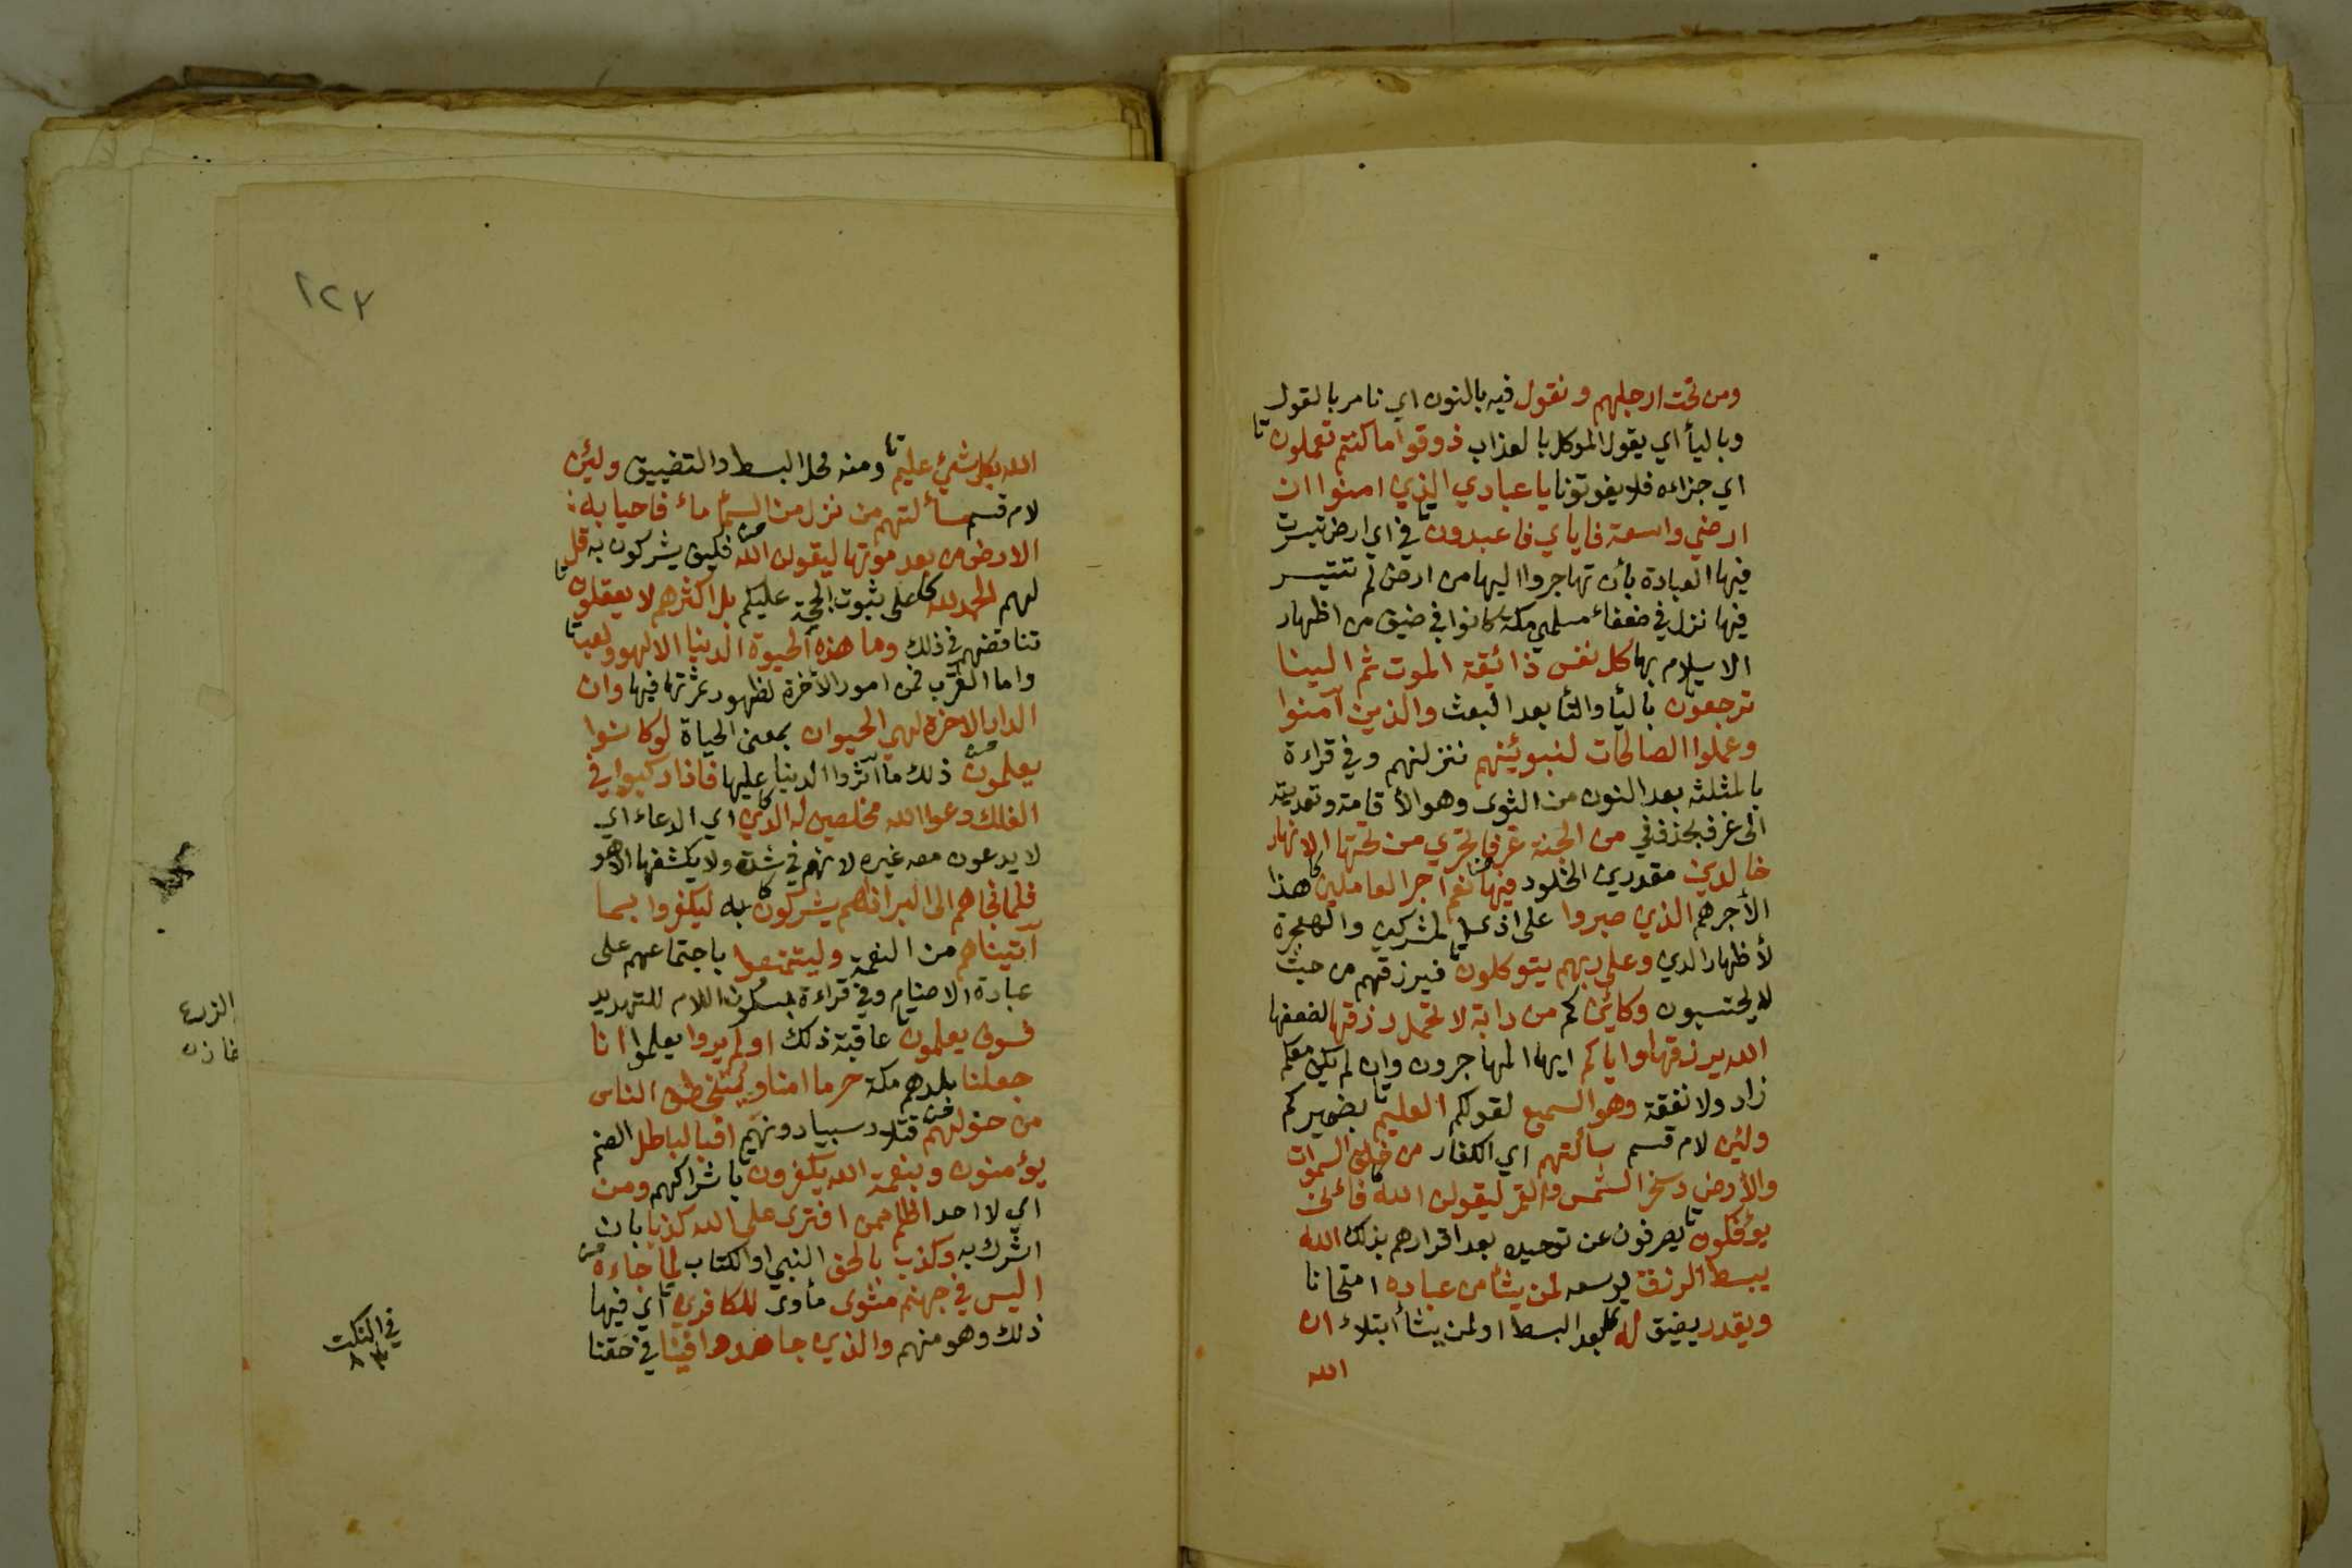 ومن تحت ارجلهم ونقول فيه بالنون اي نامر بالقول
وباليأ اي يقول الموكل بالعذاب ذوقوا ما كنتم تعملون تا
اي جزاءه فلا يفوتونا يا عبادي الذي امنوا ان
ارضي واسعة فاياي فاعبدون تا في اي ارض تيسرت
فيها العبادة بأن تهاجروا اليها من ارض لم تتيسر
فيها نزل في ضعفاء مسلمي مكة كانوا في ضيق من اظهار
الاسلام بها كل نفس ذائقة الموت ثم الينا
ترجعون باليأ والتأ بعد البعث والذين آمنوا
وعملوا الصالحات لنبوئنهم ننزلنهم وفي قراءة
بالمثلثه بعد النون من الثوى وهو الأقامة وتعديته
الى غرف بحذف في من الجنة غرفا تجري من تحتها الانهار
خالدين مقدرين الخلود فيها نعم اجر العاملين هذا
الأجر هم الذي صبروا على اذى المشركين والهجرة
لأظهار الدين وعلى ربهم يتوكلون تا فيرزقهم من حيث
لا يحتسبون وكائن كم من دابة لا تحمل رزقها لضعفها
الله يرزقها واياكم ايها المهاجرون وان لم يكن معكم
زاد ولا نفقة وهو السميع لقولكم العليم تا بضميركم
ولئن لام قسم سألتهم اي الكفار من خلق السموات
والأرض وسخر الشمس والقمر ليقولن الله فأنى
يؤفكون تا يصرفون عن توحيده بعد اقرارهم بذلك الله
يبسط الرزق يوسعه لمن يشأ من عباده امتحانا
ويقدر يضيق له بعد البسط او لمن يشأ ابتلاء ان
الله
١٢٣
الله بكل شئ عليم تا ومنه محل البسط والتضييق ولئن
لام قسم سألتهم من نزل من السمأ ماء فاحيا به
الارض من بعد موتها ليقولن الله فكيف يشركون به قل
لهم الحمد لله على ثبوت الحجة عليكم بل اكثرهم لا يعقلون تا
تناقضهم في ذلك وما هذه الحيوة الدنيا الا لهو ولعب تا
واما القرب فمن امور الأخرة لظهور ثمرتها فيها وان
الدار الاخرة لهي الحيوان بمعنى الحياة لو كانوا
يعلمون ذلك ما آثروا الدنيا عليها فاذا ركبوا في
الفلك دعوا الله مخلصين له الدين اي الدعاء اي
لا يدعون معه غيره لانهم في شدة ولا يكشفها الا هو
فلما نجاهم الى البر اذا هم يشركون به ليكفروا بما
آتيناهم من النعمة وليتمتعوا باجتماعهم على
عبادة الاصنام وفي قراءة بسكون اللام للتهديد
فسوف يعلمون تا عاقبة ذلك اولم يروا يعلموا انا
جعلنا بلدهم مكة حرما امنا ويتخطف الناس
من حولهم قتلا وسبيا دونهم افبالباطل الصنم
يؤمنون وبنعمة الله يكفرون تا باشراكهم ومن
اي لا احد اظلم ممن افترى على الله كذبا بان
اشرك به وكذب بالحق النبي او الكتاب لما جاءه
اليس في جهنم مثوى مأوى للكافرين تا اي فيها
ذلك وهو منهم والذين جاهدوا فينا في حقنا
الزرع
خازن
في النكت